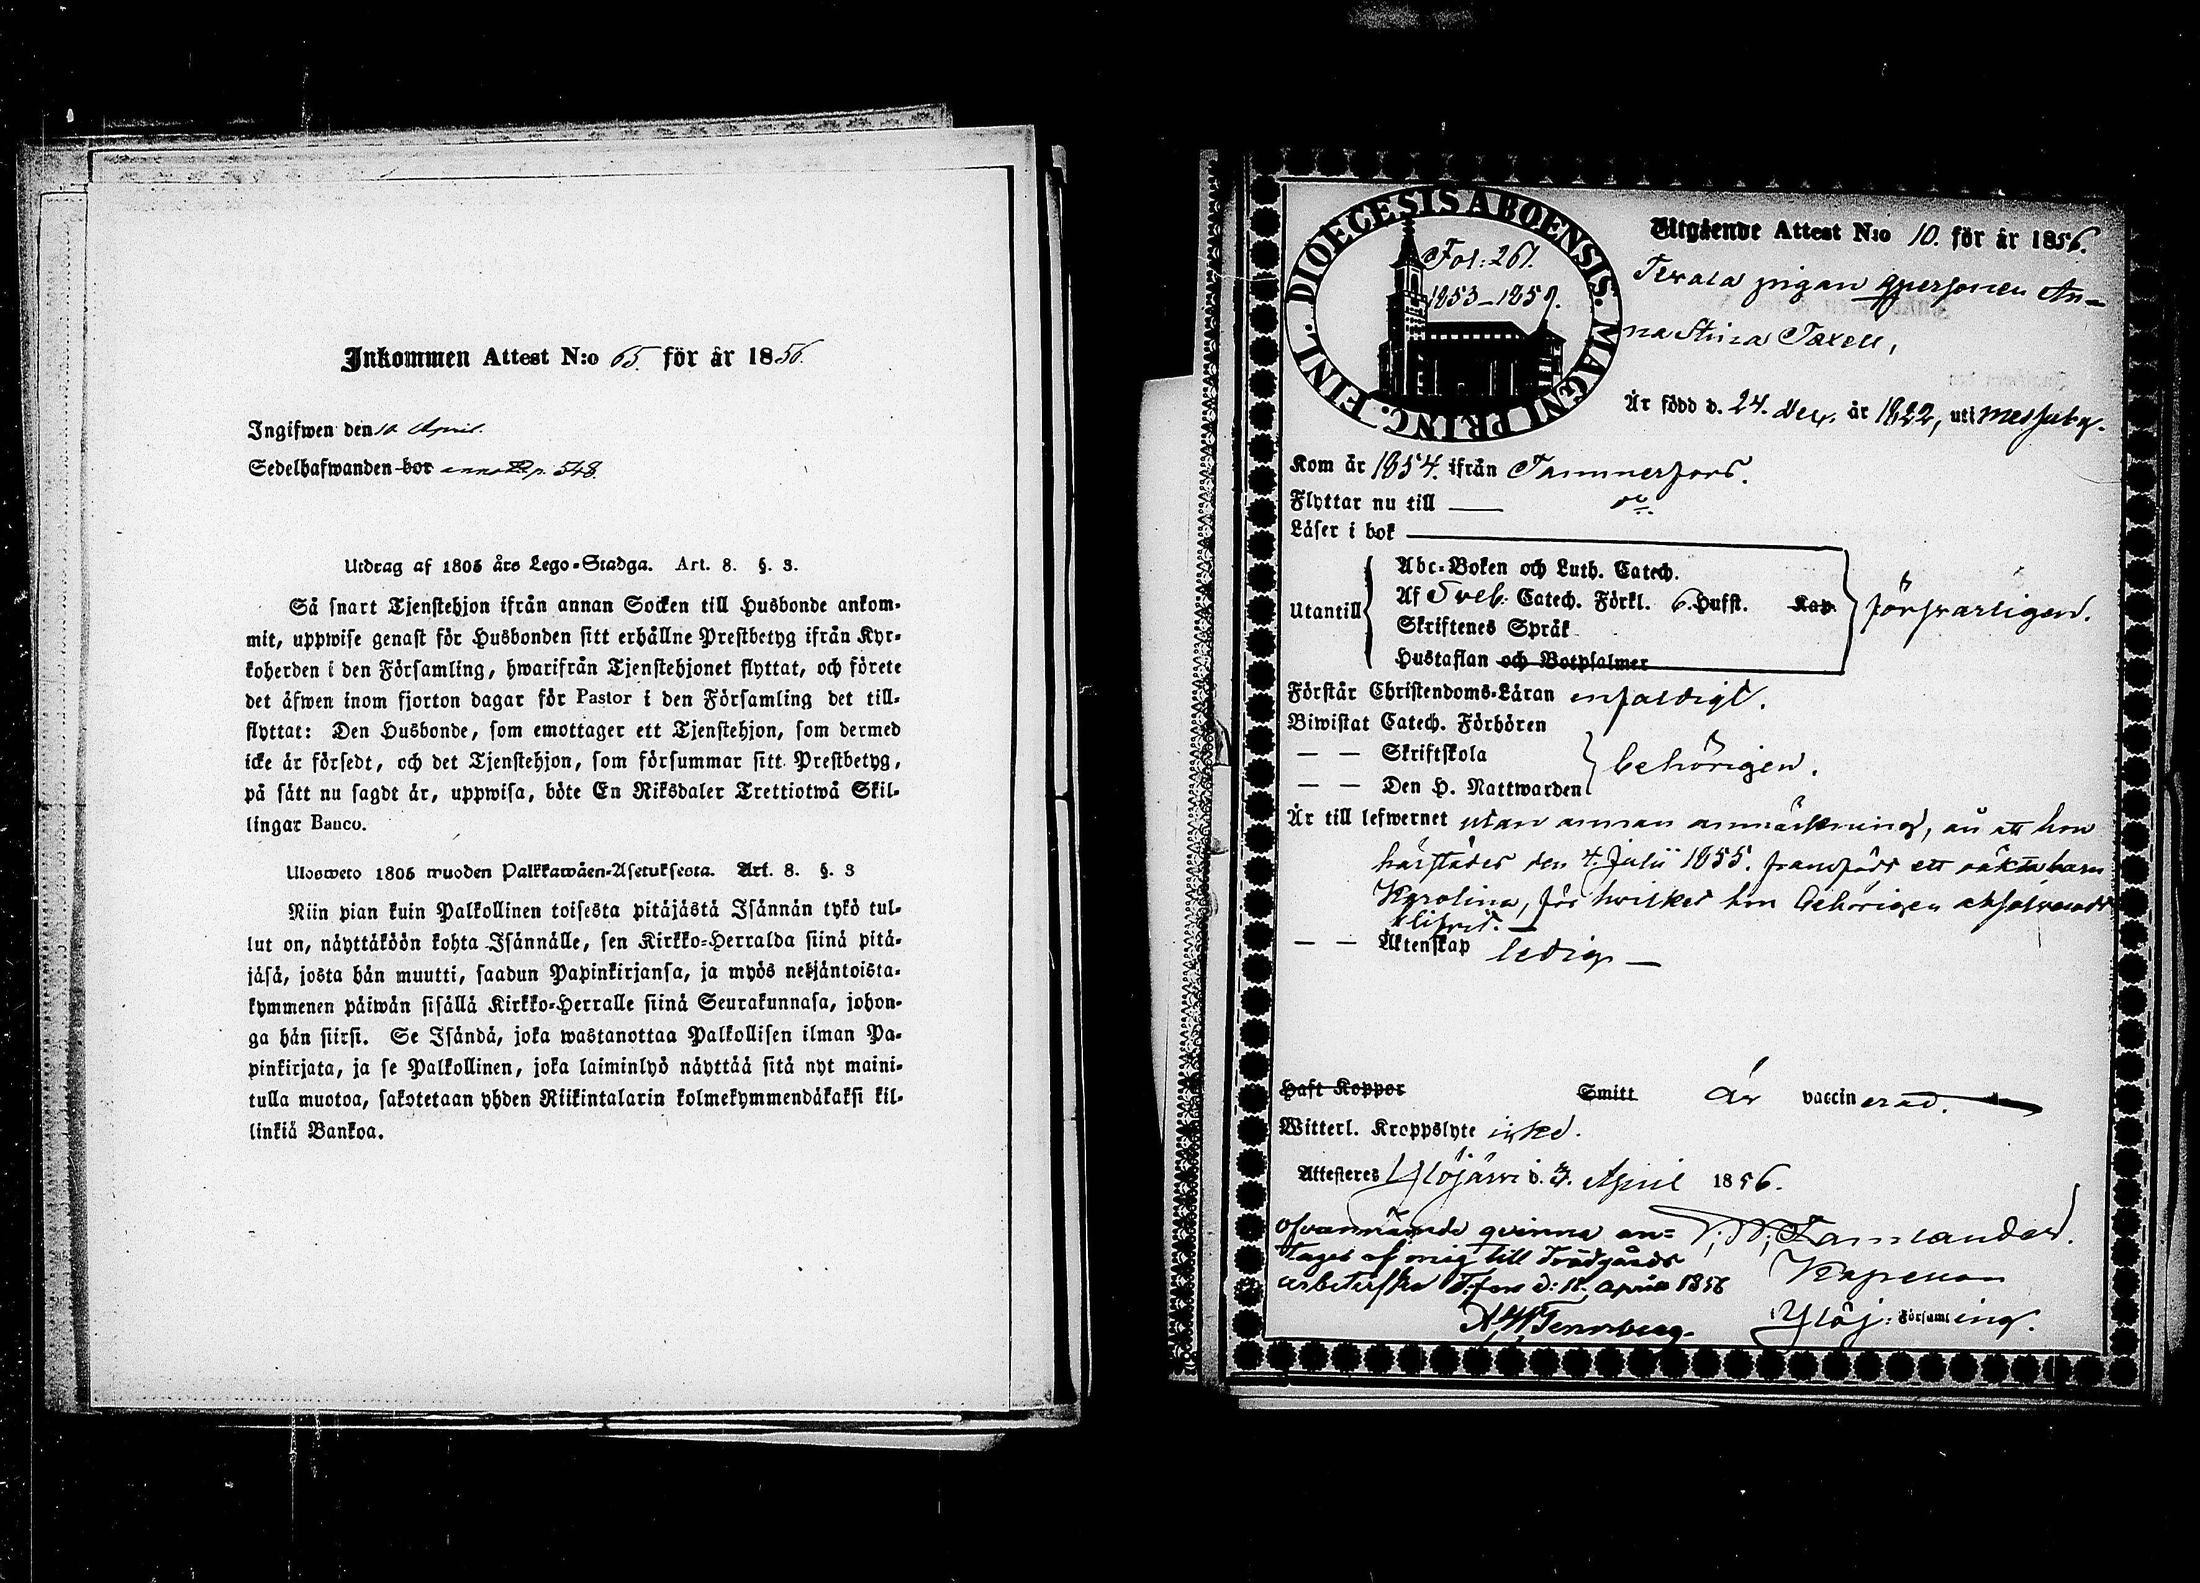 Inkommen Attest N:o 65. för år 1856.
Ingifwen den 10 April.
Sedelhafwanden bor p. 548.
Utdrag af 1805 års Lego-Stadga. Art. 8. §. 3.
Så snart Tjenstehjon ifrån annan Socken till Husbonde ankom-
mit, uppwise genast för Husbonden sitt erhållne Prestbetyg ifrån Kyr-
koherden i den Församling, hwarifrån Tjenstehjonet flyttat, och förete
det äfwen inom fjorton dagar för Pastor i den Församling det till-
flyttat: Den Husbonde, som emottager ett Tjenstehjon, som dermed
icke är försedt, och det Tjenstehjon, som försummar sitt Prestbetyg,
på sätt nu sagdt är, uppwisa, böte En Riksdaler Trettiotwå Skil-
lingar Banco.
Ulosweto 1805 wuoden Palkkawäen-Asetuksesta. Art. 8. §. 3
Niin pian kuin Palkollinen toisesta pitäjästä Isännän tykö tul-
lut on, näyttäköön kohta Isännälle, sen Kirkko-Herralda siinä pitä-
jäsä, josta hän muutti, saadun Papinkirjansa, ja myös neljäntoista-
kymmenen päiwän sisällä Kirkko-Herralle siinä Seurakunnasa, johon-
ga hän siirsi. Se Isändä, joka wastanottaa Palkollisen ilman Pa-
pinkirjata, ja se Palkollinen, joka laiminlyö näyttää sitä nyt maini-
tulla muotoa, sakotetaan yhden Riikintalarin kolmekymmendäkaksi kil-
linkiä Bankoa.
DIOECESIS ABOENSIS. MAGNI PRINC. FINL.
Fol: 261.
1853-1859.
Utgående Attest N:o 10. för år 1856.
pigan qpersonen An-
na Stina Taxell,
Är född d. 24. Dec. år 1822, uti Messuby.
Kom år 1854. ifrån Tammerfors.
Flyttar nu till — do
Läser i bok
Abc-Boken och Luth. Catech.
Utantill Af Sveb. Catech. Förkl. 6. Hufst. Kap försvarligen.
Skriftenes Språk
Hustaflan och Botpsalmer
Förstår Christendoms-Läran enfaldigt.
Biwistat Catech. Förhören
— — Skriftskola behörigen.
— — Den H. Nattwarden
Är till lefwernet utan annan anmärkning, än att hon
härstädes den 4. Julii 1855. framfödt ett oäkta barn
Karolina, för hvilket hon behörigen absolverad
blifvit. —
— — Äktenskap ledig —
Haft Koppor Smitt är vaccinerad.
Witterl. Kroppslyte icke.
Attesteres Ylöjärvi d. 3. April 1856.
Kapellan
Ylöj: Församling.
Ofvannämnde qvinna an-
tages af mig till Trädgårds
arbeterska T.fors d: 11. April 1856